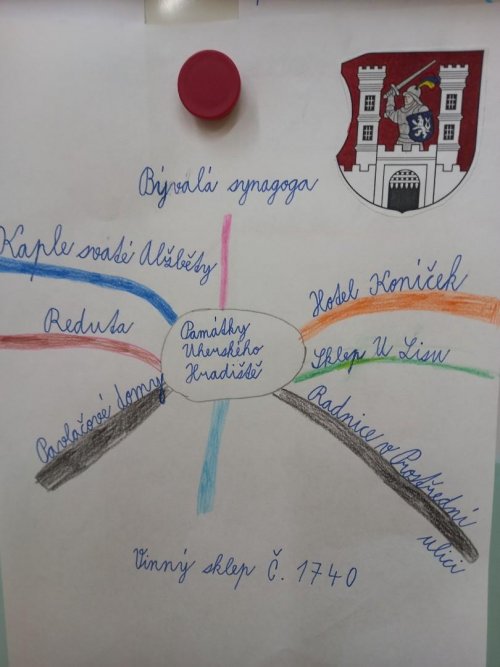 Bývalá synagoga
Kaple svaté Alžběty
Hotel Koníček
Reduta
Památky
Uherského
Hradiště
Sklep U Lisu
Pavlačové domy
Radnice v Prostřední
ulici
Vinný sklep Č. 1740